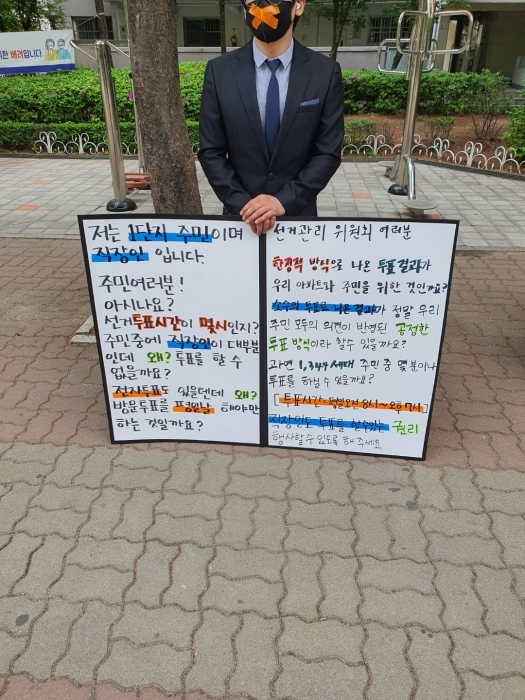 한 배려입니다.
저는 1단지 주민이며
직장인 입니다.
주민여러분!
아시나요?
선거투표시간이 몇시인지?
주민중에 직장인이 대부분
인데 왜? 투표를 할 수
없을까요?
전자투표도 있을텐데 왜?
방문투표를 평일날 해야만
하는 것일까요?
선거관리 위원회 여러분
한정적 방식으로 나온 투표결과가
우리 아파트와 주민을 위한 것인가요?
소수의 투표로 나온 결과가 정말 우리
주민 모두의 의견이 반영된 공정한
투표 방식이라 할수 있을까요?
과연 1,344세대 주민 중 몇분이나
투표를 하실 수 있을까요?
[투표시간: 평일오전 8시~오후 7시]
직장인도 투표를 할수있는 권리
행사할 수 있도록 해 주세요